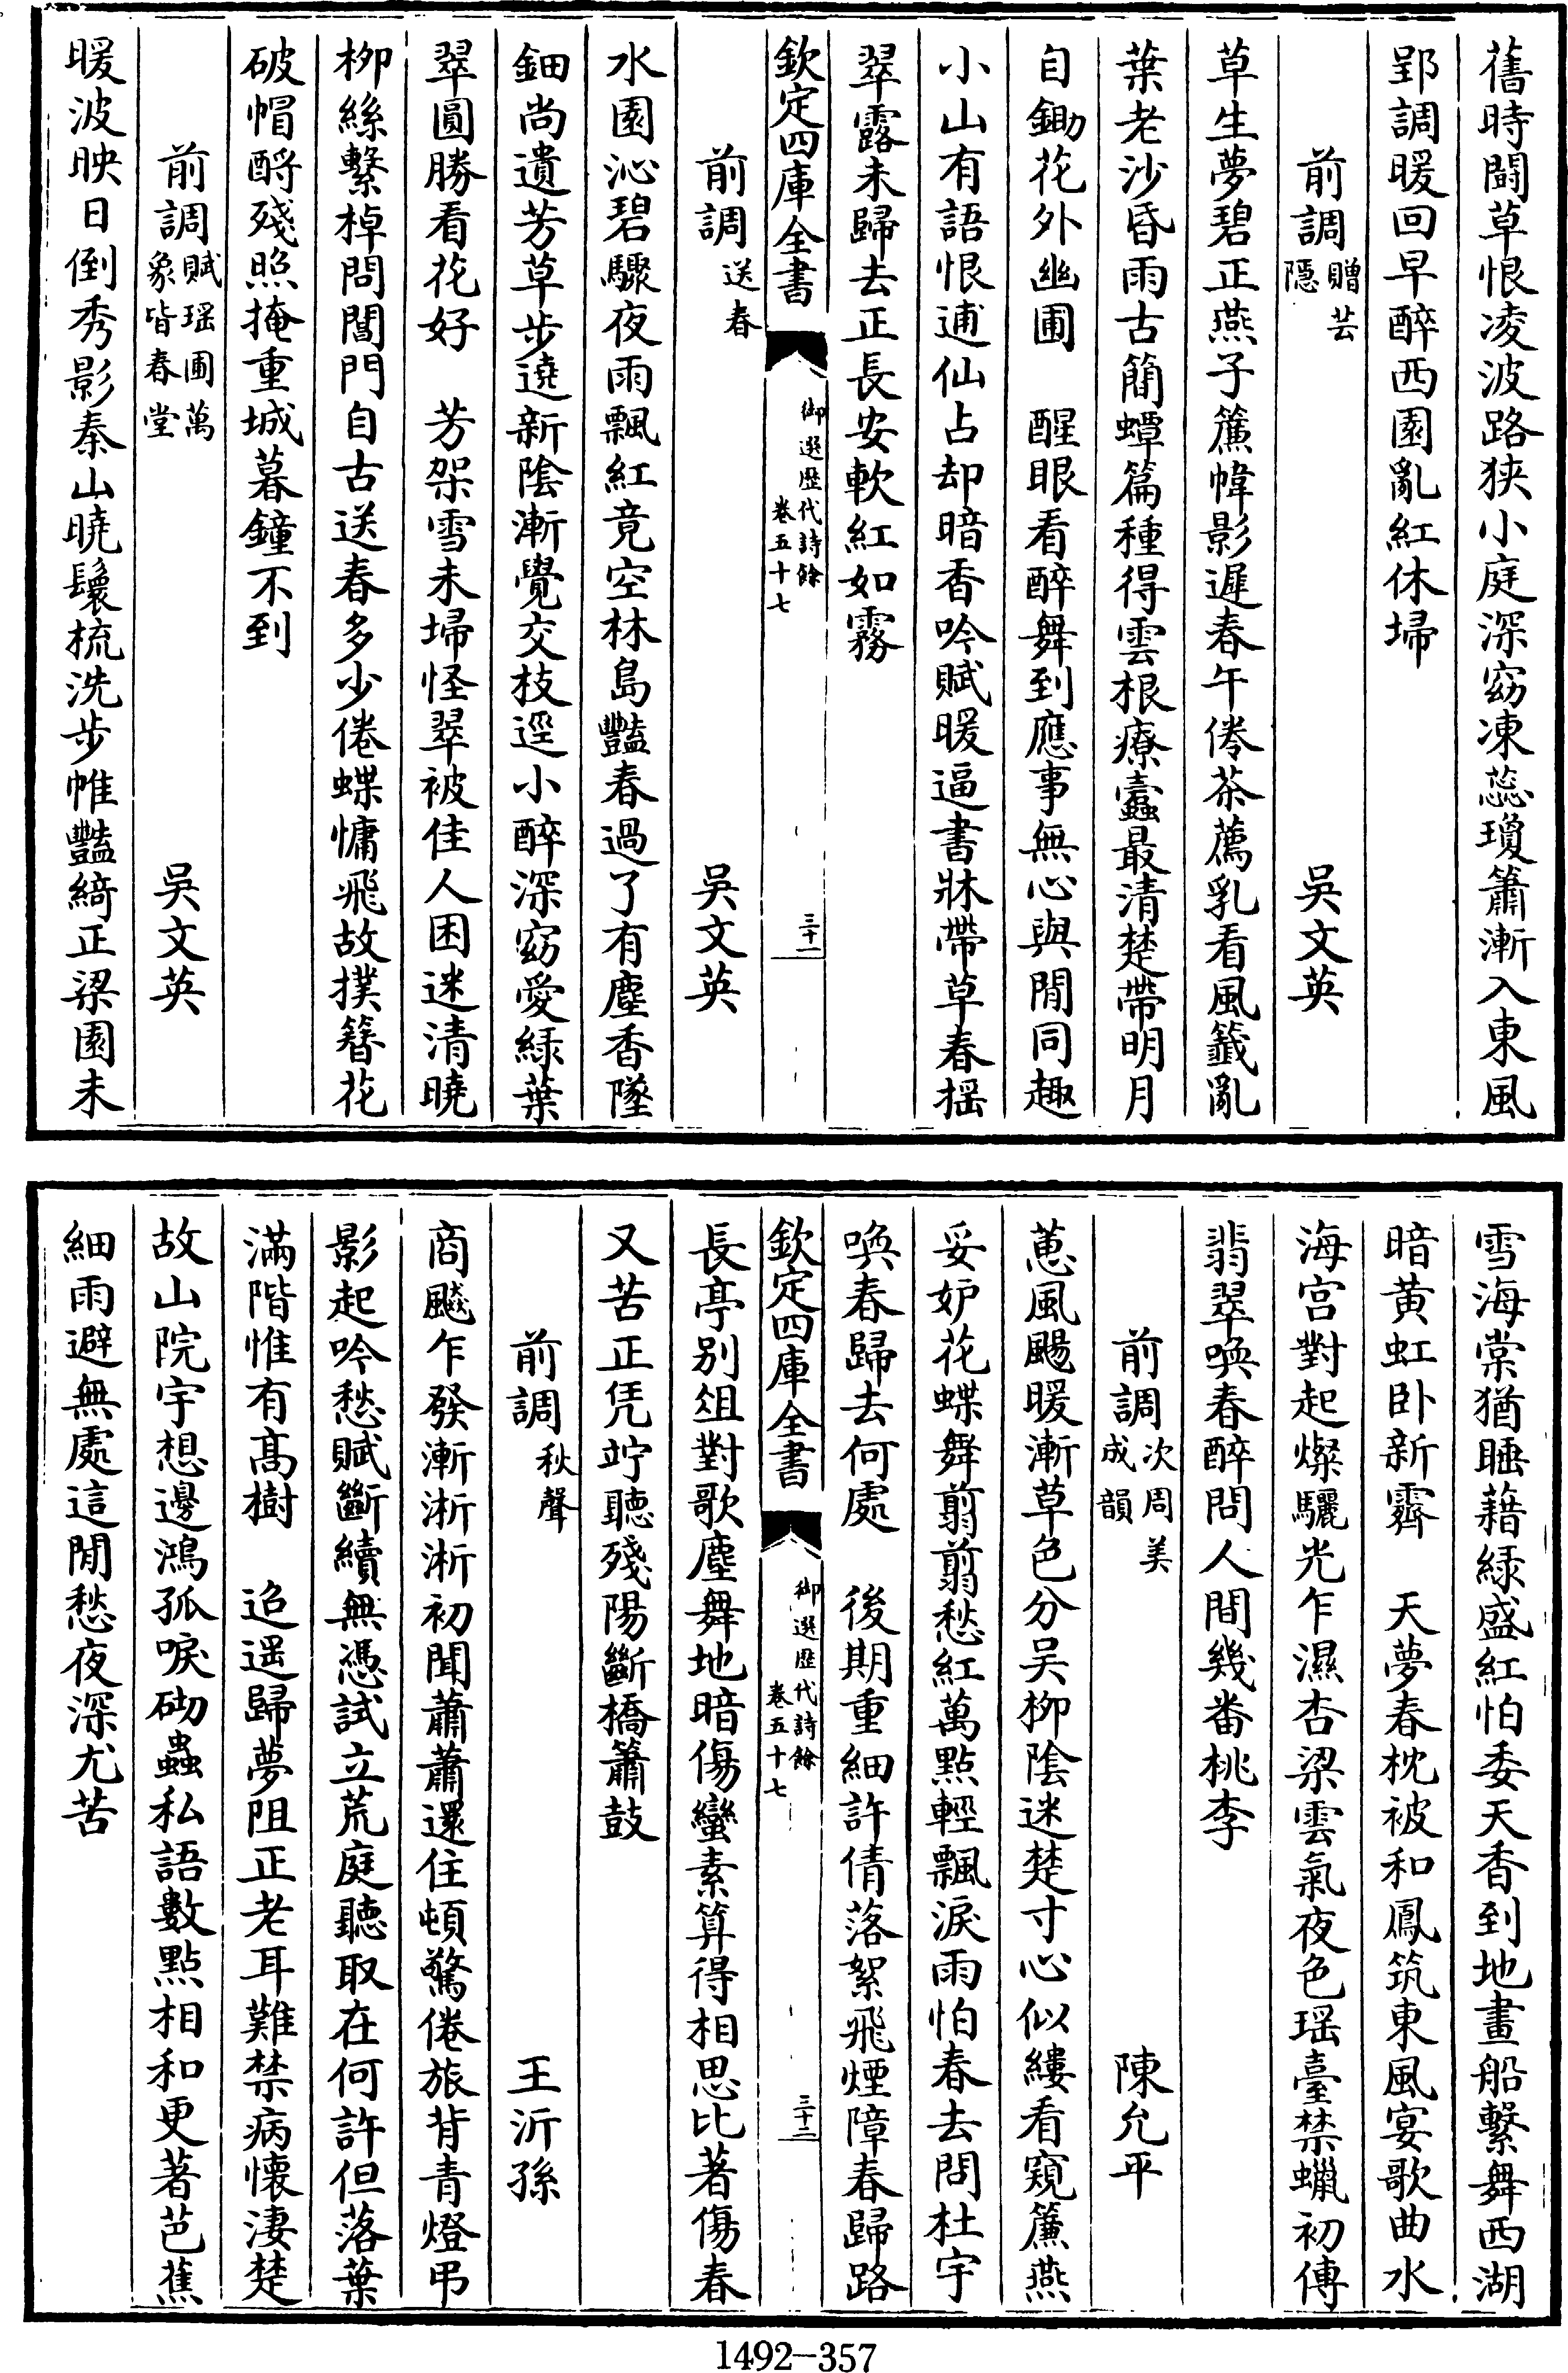 舊時鬭草恨凌波路狹小庭深窈凍蕊瓊簫漸入東風
郢調暖回早醉西園亂紅休埽
前調贈芸隱　吳文英
草生夢碧正燕子簾幃影遲春午倦茶薦乳看風籤亂
葉老沙昏雨古簡蟫篇種得雲根療蠹最清楚帶明月
自鋤花外幽圃　醒眼看醉舞到應事無心與閒同趣
小山有語恨逋仙占却暗香吟賦暖逼書牀帶草春揺
翠露未歸去正長安軟紅如霧
欽定四庫全書　御選歷代詩餘　卷五十七　三十一
前調送春　吳文英
水園沁碧驟夜雨飄紅竟空林島豔春過了有塵香墜
鈿尚遺芳草步遶新陰漸覺交枝逕小醉深窈愛緑葉
翠圓勝看花好　芳架雪未埽怪翠被佳人困迷清曉
柳絲繫棹問閶門自古送春多少倦蝶慵飛故撲簪花
破帽酹殘照掩重城暮鐘不到
前調賦瑶圃萬象皆春堂　吳文英
暖波映日倒秀影秦山曉鬟梳洗步帷豔綺正梁園未
雪海棠猶睡藉緑盛紅怕委天香到地畫船繫舞西湖
暗黃虹卧新霽　天夢春枕被和鳳筑東風宴歌曲水
海宫對起燦驪光乍濕杏梁雲氣夜色瑶臺禁蠟初傳
翡翠喚春醉問人間幾番桃李
前調次周美成韻　陳允平
蕙風颺暖漸草色分吴柳陰迷楚寸心似縷看窺簾燕
妥妒花蝶舞翦翦愁紅萬點輕飄淚雨怕春去問杜宇
喚春歸去何處　後期重細許倩落絮飛煙障春歸路
欽定四庫全書　御選歷代詩餘　卷五十七　三十二
長亭别俎對歌塵舞地暗傷蠻素算得相思比著傷春
又苦正凭竚聽殘陽斷橋簫鼓
前調秋聲　王沂孫
商飈乍發漸淅淅初聞蕭蕭還住頓驚倦旅背青燈弔
影起吟愁賦斷續無憑試立荒庭聽取在何許但落葉
滿階惟有髙樹　迢遥歸夢阻正老耳難禁病懷淒楚
故山院宇想邊鴻孤唳砌蟲私語數點相和更著芭蕉
細雨避無處這閒愁夜深尤苦
1492—357